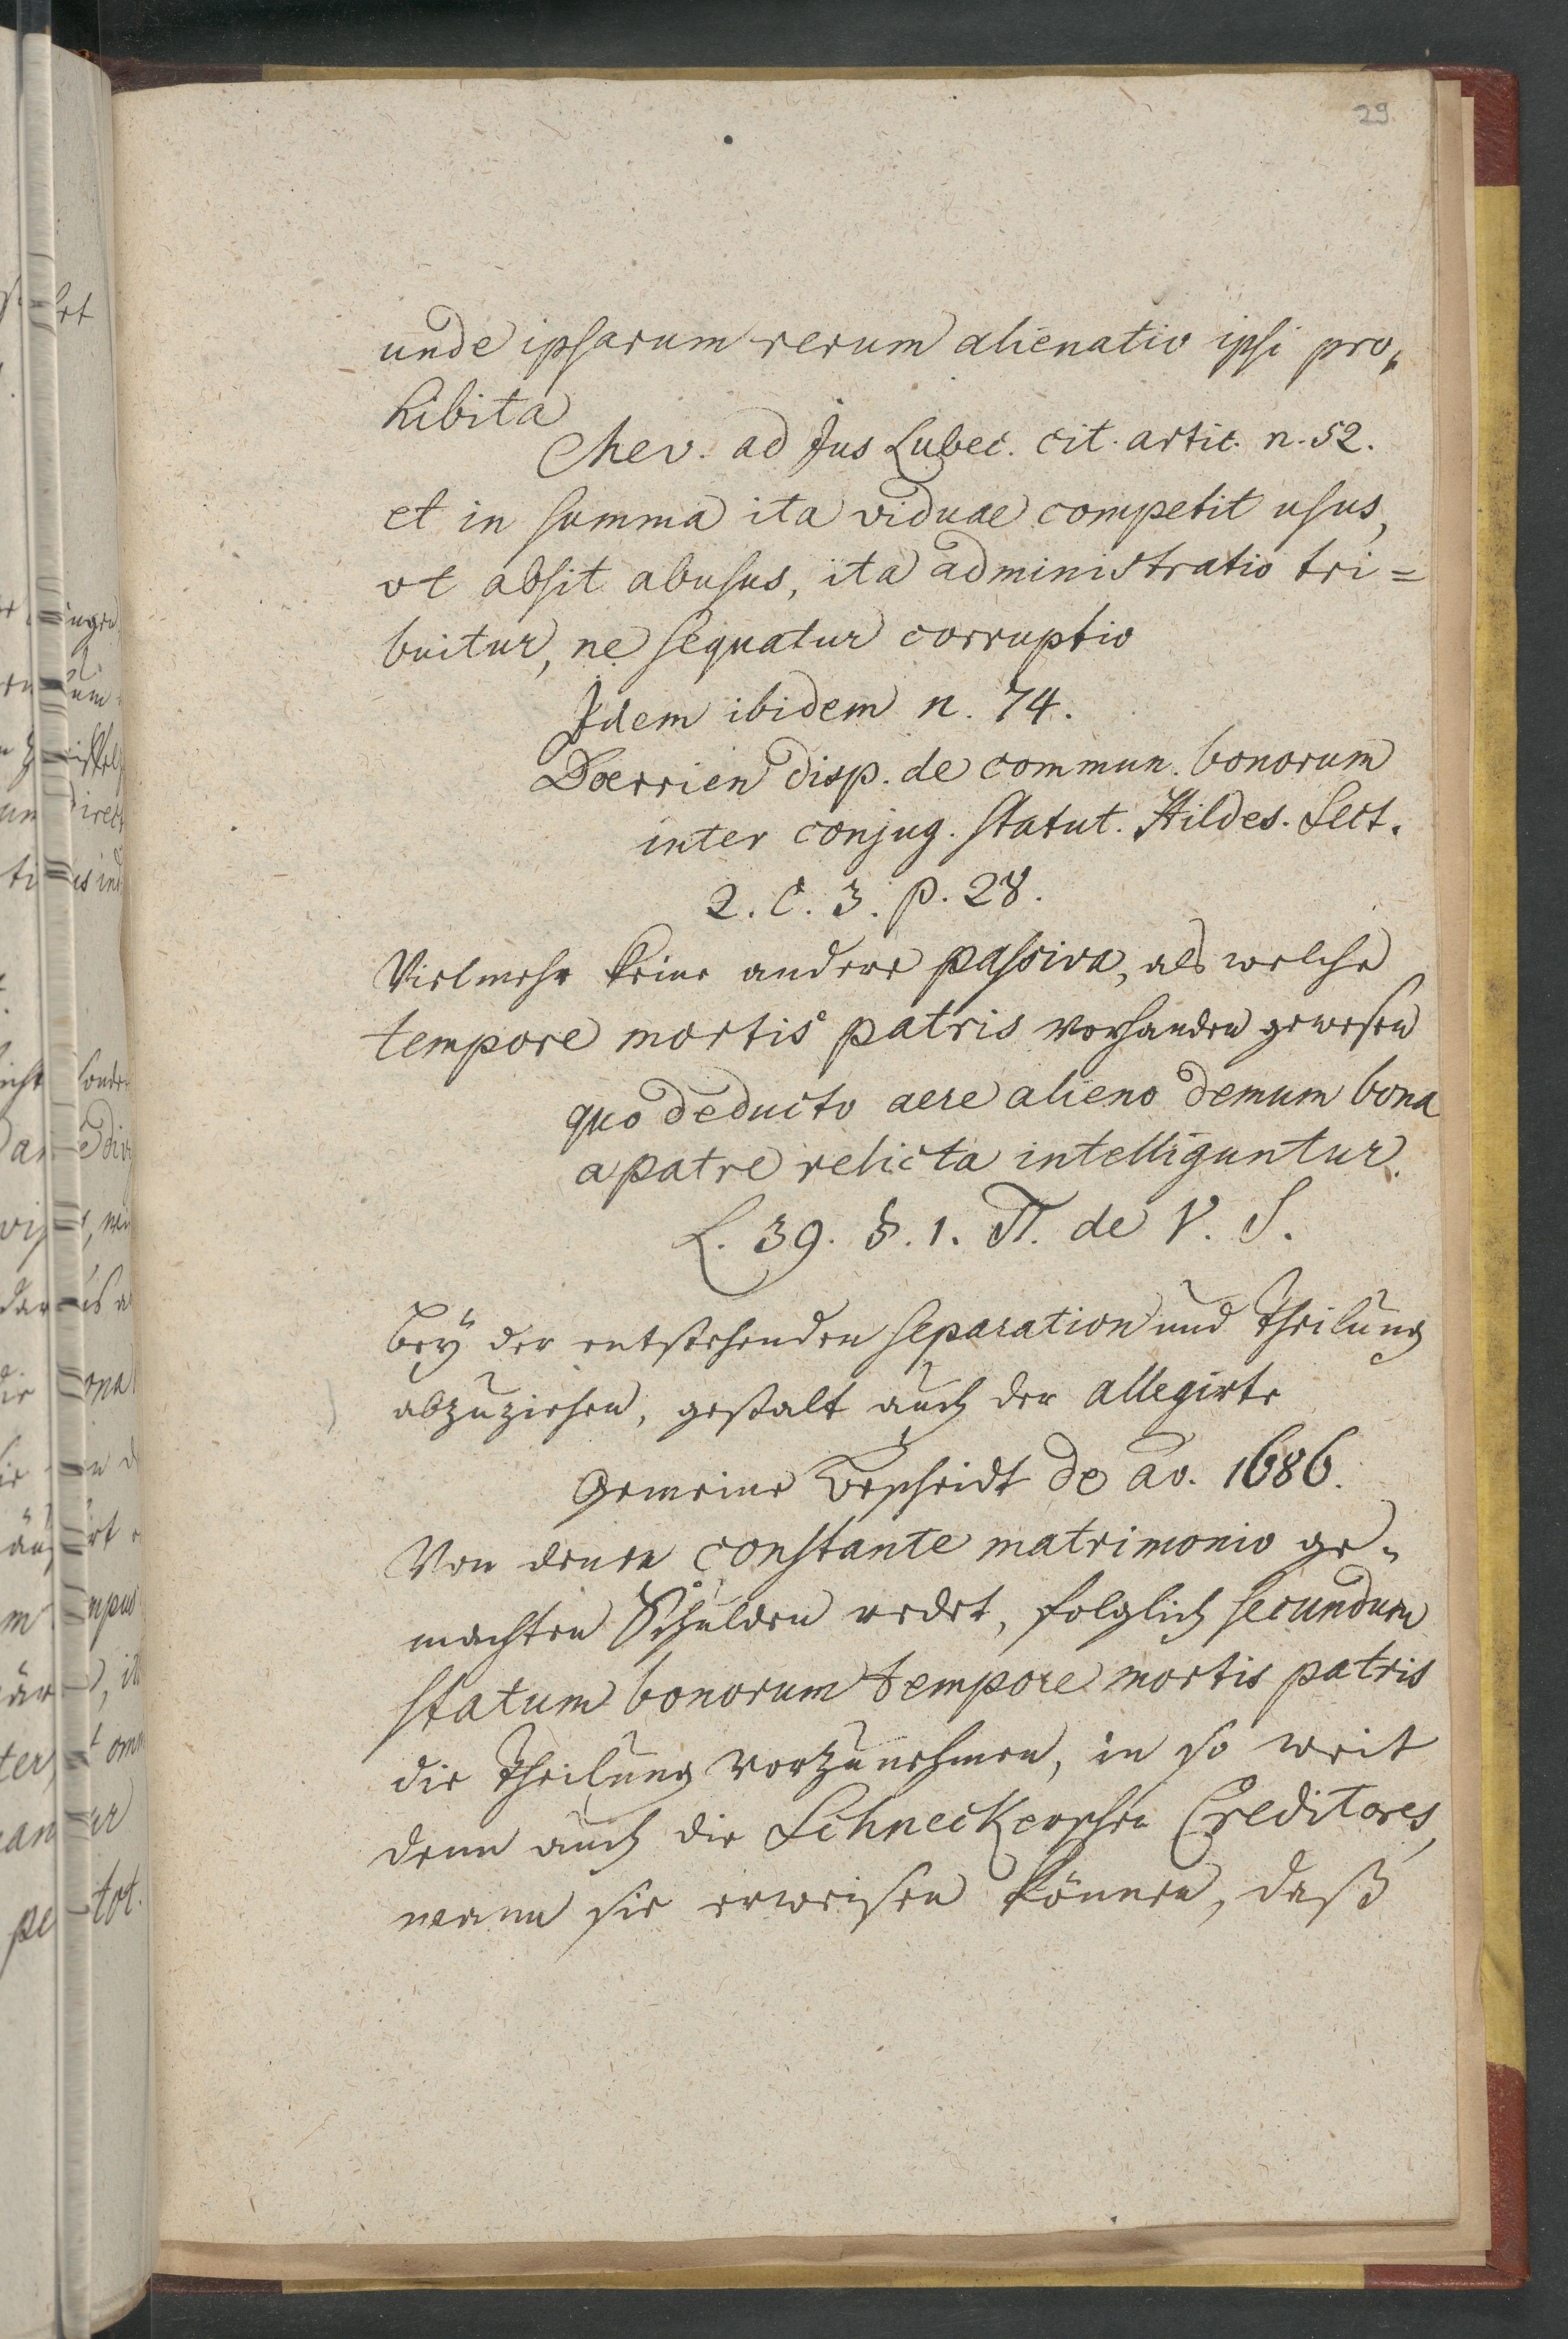 29
unde ipsarum rerum alienatio ipsi pro„
hibita
Mev. ad Jus Lubec. cit. artic. n. 52.
et in summa ita viduae competit usus,
ut absit abusus, ita administratio tri=
buitur, ne sequatur corruptio
Idem ibidem n. 74.
Doerrien disp. de commun. bonorum
inter conjug. statut. Hildes. Sect.
2. C. 3. p. 28.
Vielmehr keine andere passiva, als welche
tempore mortis patris vorhanden gewesen
quo deducto aere alieno demum bona
a patre relicta intelliguntur.
L. 39. §. 1. π. de V. S.
bey der entstehenden separation und Theilung
abzuziehen, gestalt auch der allegirte
Gemeine Bescheidt de ao. 1686.
Von denen constante matrimonio ge„
machten Schulden redet, folglich secundum
statum bonorum tempore mortis patris
die Theilung vorzunehmen, in so weit
denn auch die Schneckerschen Creditores,
wann sie erweisen können, daß